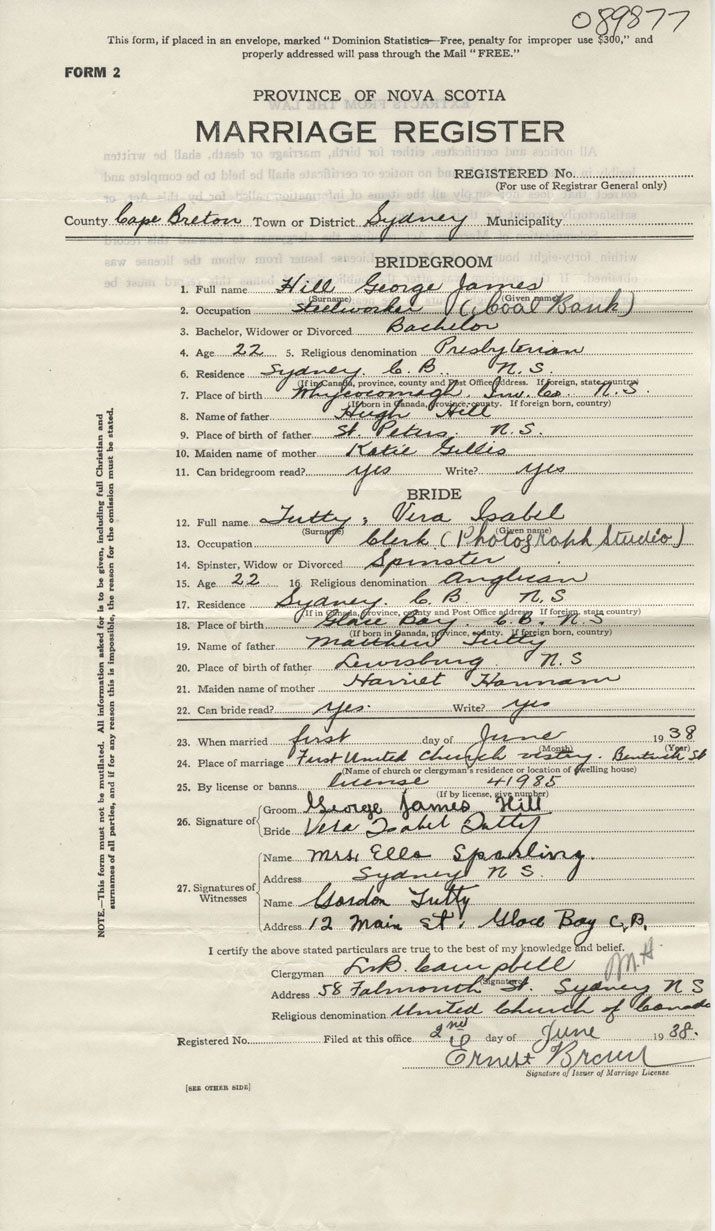 089877
This form, if placed in an envelope, marked "Dominion Statistics—Free, penalty for improper use $300," and
properly addressed will pass through the Mail "FREE."
FORM 2
PROVINCE OF NOVA SCOTIA
MARRIAGE REGISTER
REGISTERED No.
(For use of Registrar General only)
County Cape Breton Town or District Sydney Municipality
BRIDEGROOM
1. Full name Hill George James
(Surname) (Given name)
2. Occupation Steelworker (Coal Bank)
3. Bachelor, Widower or Divorced Bachelor
4. Age 22 5. Religious denomination Presbyterian
6. Residence Sydney C. B. N. S.
(If in Canada, province, county and Post Office address. If foreign, state country)
7. Place of birth Whycocomagh, Inv. Co. N. S.
(If born in Canada, province, county. If foreign born, country)
8. Name of father Hugh Hill
9. Place of birth of father St. Peters, N. S.
10. Maiden name of mother Katie Gillis
11. Can bridegroom read? yes Write? yes
BRIDE
12. Full name Tutty, Vera Isabel
(Surname) (Given name)
13. Occupation Clerk (Photograph Studio)
14. Spinster, Widow or Divorced Spinster
15. Age 22 16 Religious denomination Anglican
17. Residence Sydney. C. B. N. S
(If in Canada, province, county and Post Office address If foreign, state country)
18. Place of birth Glace Bay. C. B. N. S
(If born in Canada, province, county. If foreign born, country)
19. Name of father Matthew Tutty
20. Place of birth of father Lewisburg N. S
21. Maiden name of mother Harriet Hannam
22. Can bride read? yes. Write? yes
23. When married first day of June 1938
(Month) (Year)
24. Place of marriage First United Church vestry. Bentinck St
(Name of church or clergyman's residence or location of dwelling house)
25. By license or banns license 41985
(If by license, give number)
26. Signature of
Groom George James Hill
Bride Vera Isabel Tutty
27. Signatures of Witnesses
Name Mrs. Ella Sparling.
Address Sydney N S.
Name Gordon Tutty
Address 12 Main St, Glace Bay C.B.
I certify the above stated particulars are true to the best of my knowledge and belief.
Clergyman Campbell
(Signature)
M.H.
Address 58 Falmouth St. Sydney N S
Religious denomination United Church of Canada
Registered No. Filed at this office 2nd day of June 1938.
Ernest Brown
Signature of Issuer of Marriage License
[SEE OTHER SIDE]
NOTE.—This form must not be mutilated. All information asked for is to be given, including full Christian and
surnames of all parties, and if for any reason this is impossible, the reason for the omission must be stated.